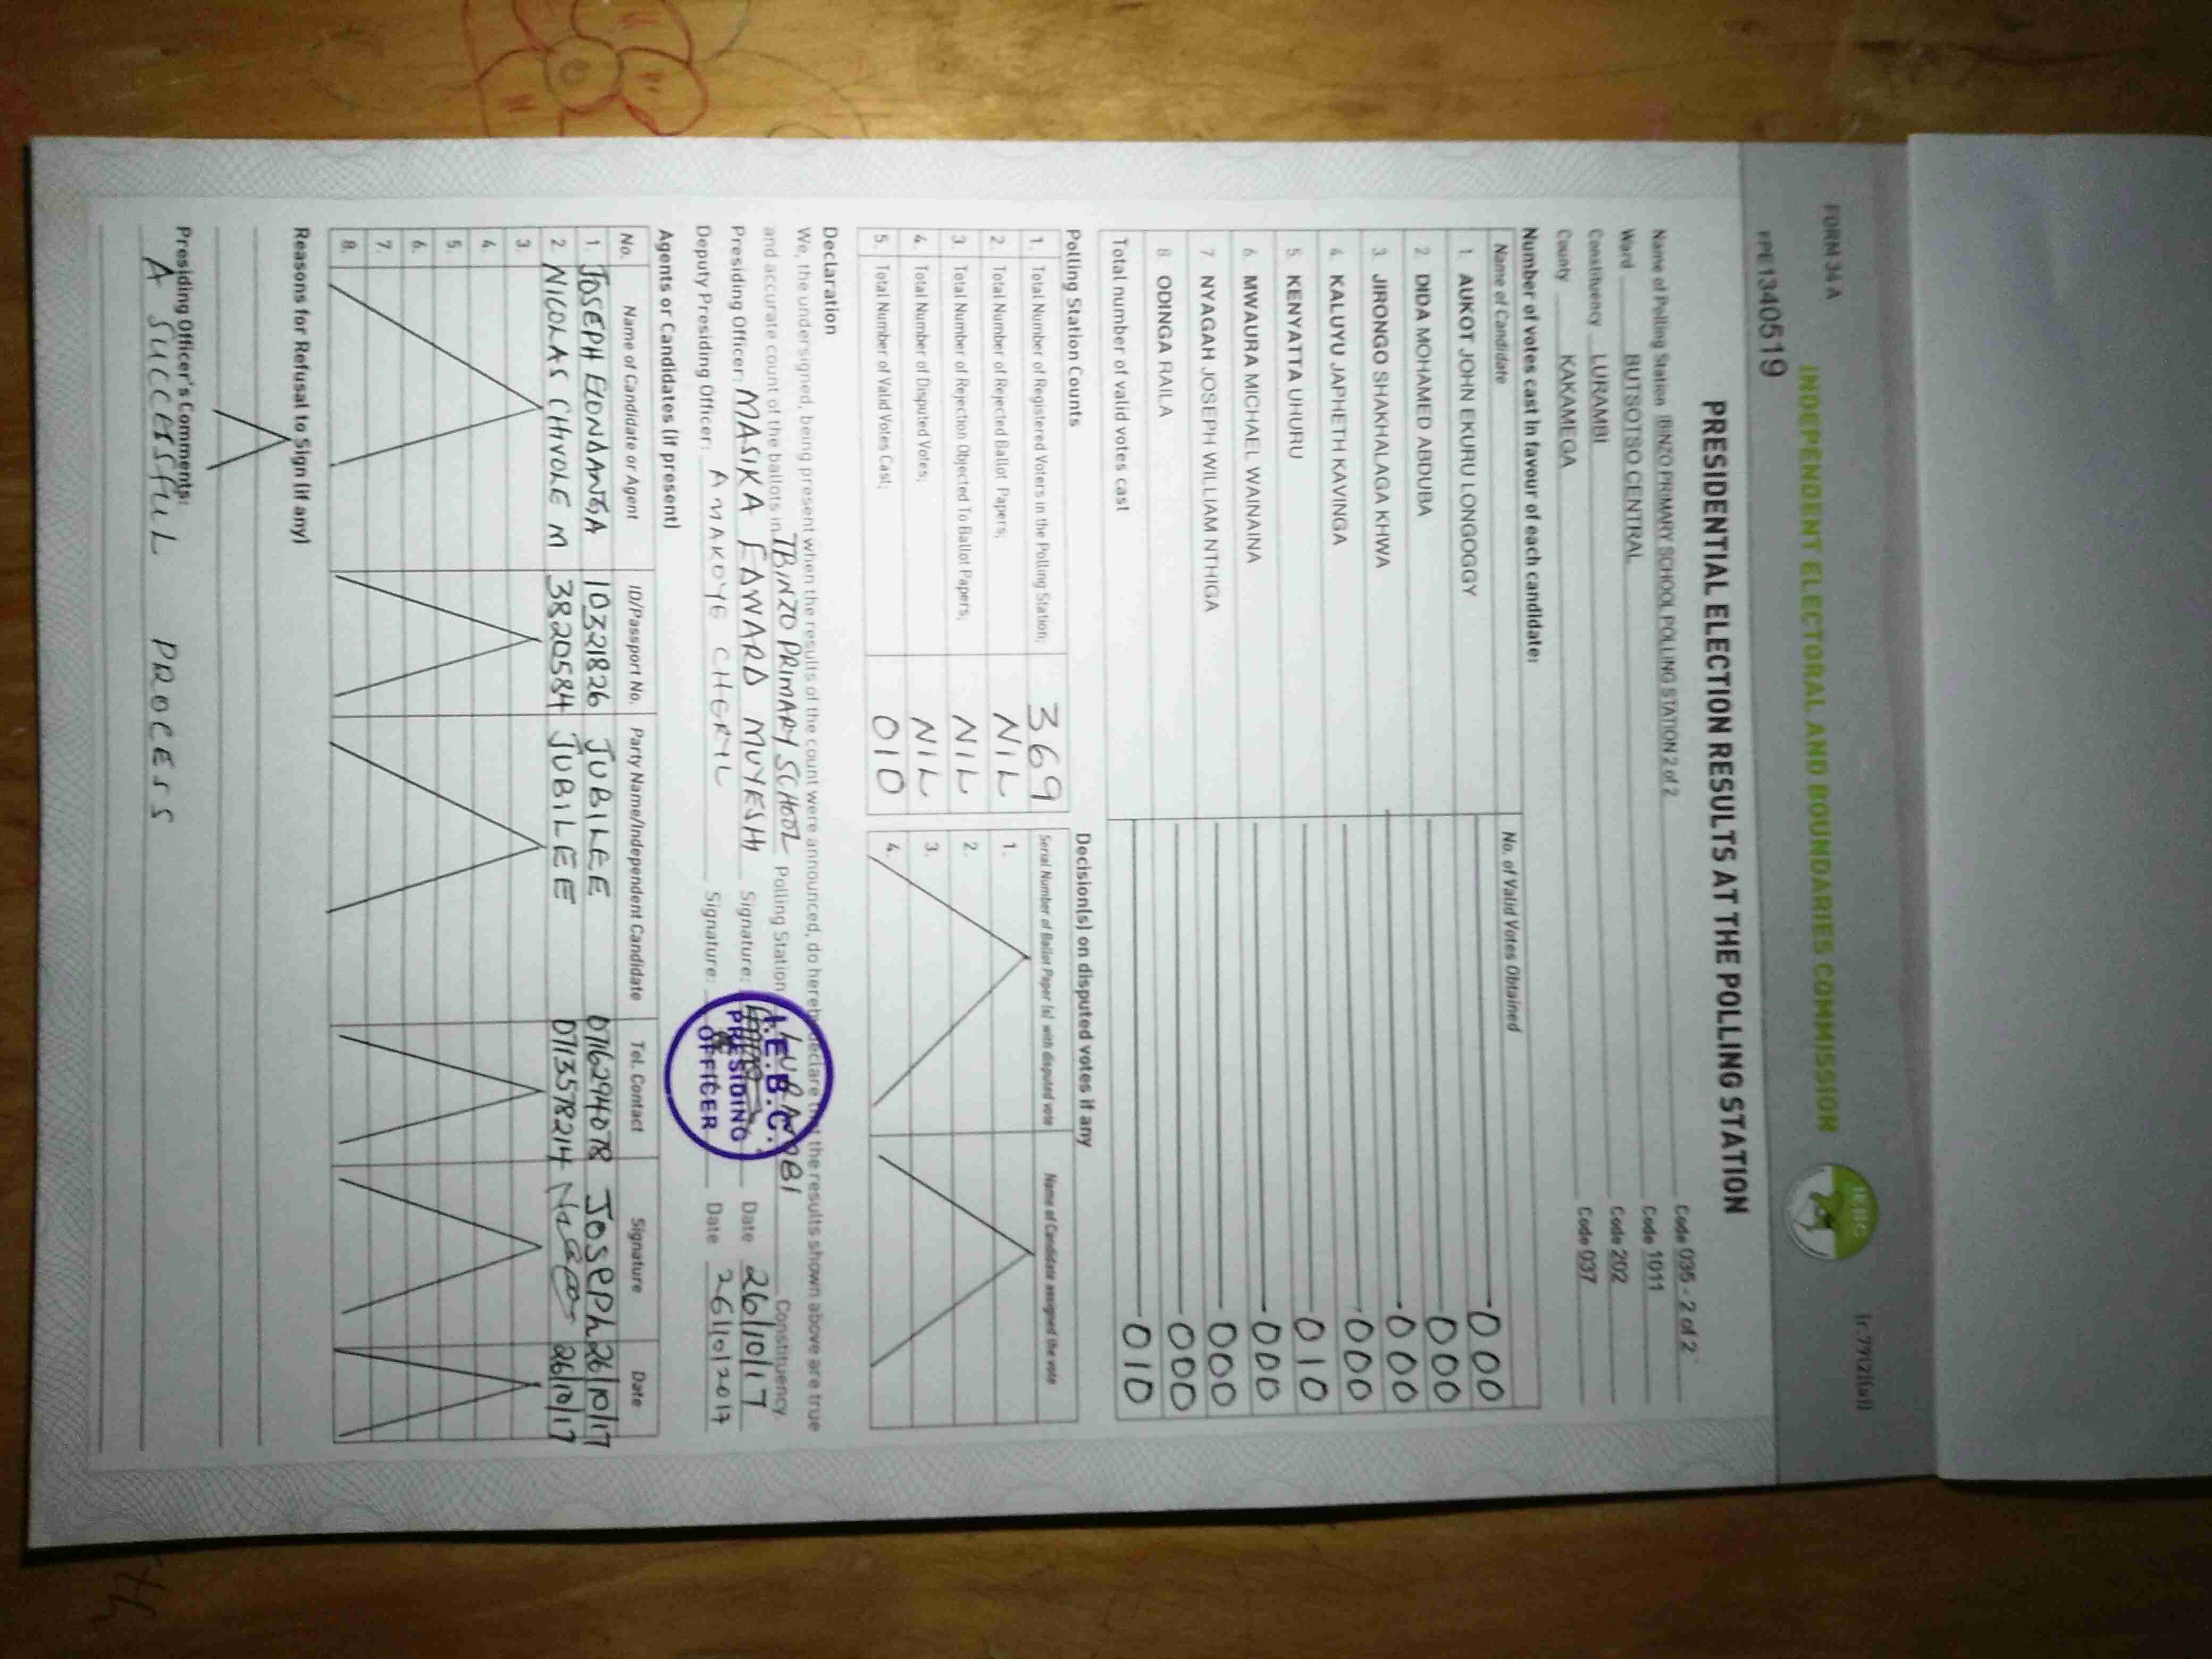 FORM 34 A
INDEPENDENT ELECTORAL AND BOUNDARIES COMMISSION
IEBC
PPE1340519
PRESIDENTIAL ELECTION RESULTS AT THE POLLING STATION
Name of Polling Station IBINZO PRIMARY SCHOOL POLLING STATION 2 of 2 Code 035 - 2 of 2
Ward BUTSOTSO CENTRAL Code 1011
Constituency LURAMBI Code 202
County KAKAMEGA Code 037
Number of votes cast in favour of each candidate:
Name of Candidate No. of Valid Votes Obtained
1 AUKOT JOHN EKURU LONGOGGY 000
2 DIDA MOHAMED ABDUBA 000
3 JIRONGO SHAKHALAGA KHWA 000
4 KALUYU JAPHETH KAVINGA 000
5 KENYATTA UHURU 010
6 MWAURA MICHAEL WAINAINA 000
7 NYAGAH JOSEPH WILLIAM NTHIGA 000
8 ODINGA RAILA 000
Total number of valid votes cast 010
Polling Station Counts
1. Total Number of Registered Voters in the Polling Station; 369
2. Total Number of Rejected Ballot Papers; NIL
3. Total Number of Rejection Objected To Ballot Papers; NIL
4. Total Number of Disputed Votes; NIL
5. Total Number of Valid Votes Cast; 010
Decision(s) on disputed votes if any
Serial Number of Ballot Paper (s) with disputed vote Name of Candidate assigned the vote
1.
2.
3.
4.
Declaration
We, the undersigned, being present when the results of the count were announced, do hereby declare that the results shown above are true
and accurate count of the ballots in IBINZO PRIMARY SCHOOL Polling Station LURAMBI Constituency
Presiding Officer: MASIKA EDWARD MUYESHI Signature: Date 26/10/17
Deputy Presiding Officer: AMAKOYE CHERYL Signature: Date 26/10/2017
I.E.B.C.
PRESIDING
OFFICER
Agents or Candidates (if present)
No. Name of Candidate or Agent ID/Passport No. Party Name/Independent Candidate Tel. Contact Signature Date
1. JOSEPH 10321826 JUBILEE 0716294078 Joseph 26/10/17
2. NICOLAS CHIVOLE M 3820584 JUBILEE 0713578214 26/10/17
3.
4.
5.
6.
7.
8.
Reasons for Refusal to Sign (if any)
Presiding Officer's Comments:
A SUCCESSFUL PROCESS